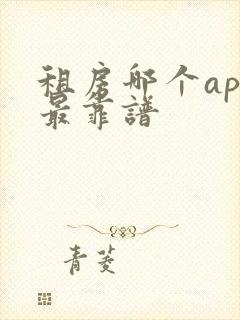 租房哪个ap
最靠譜
青菱